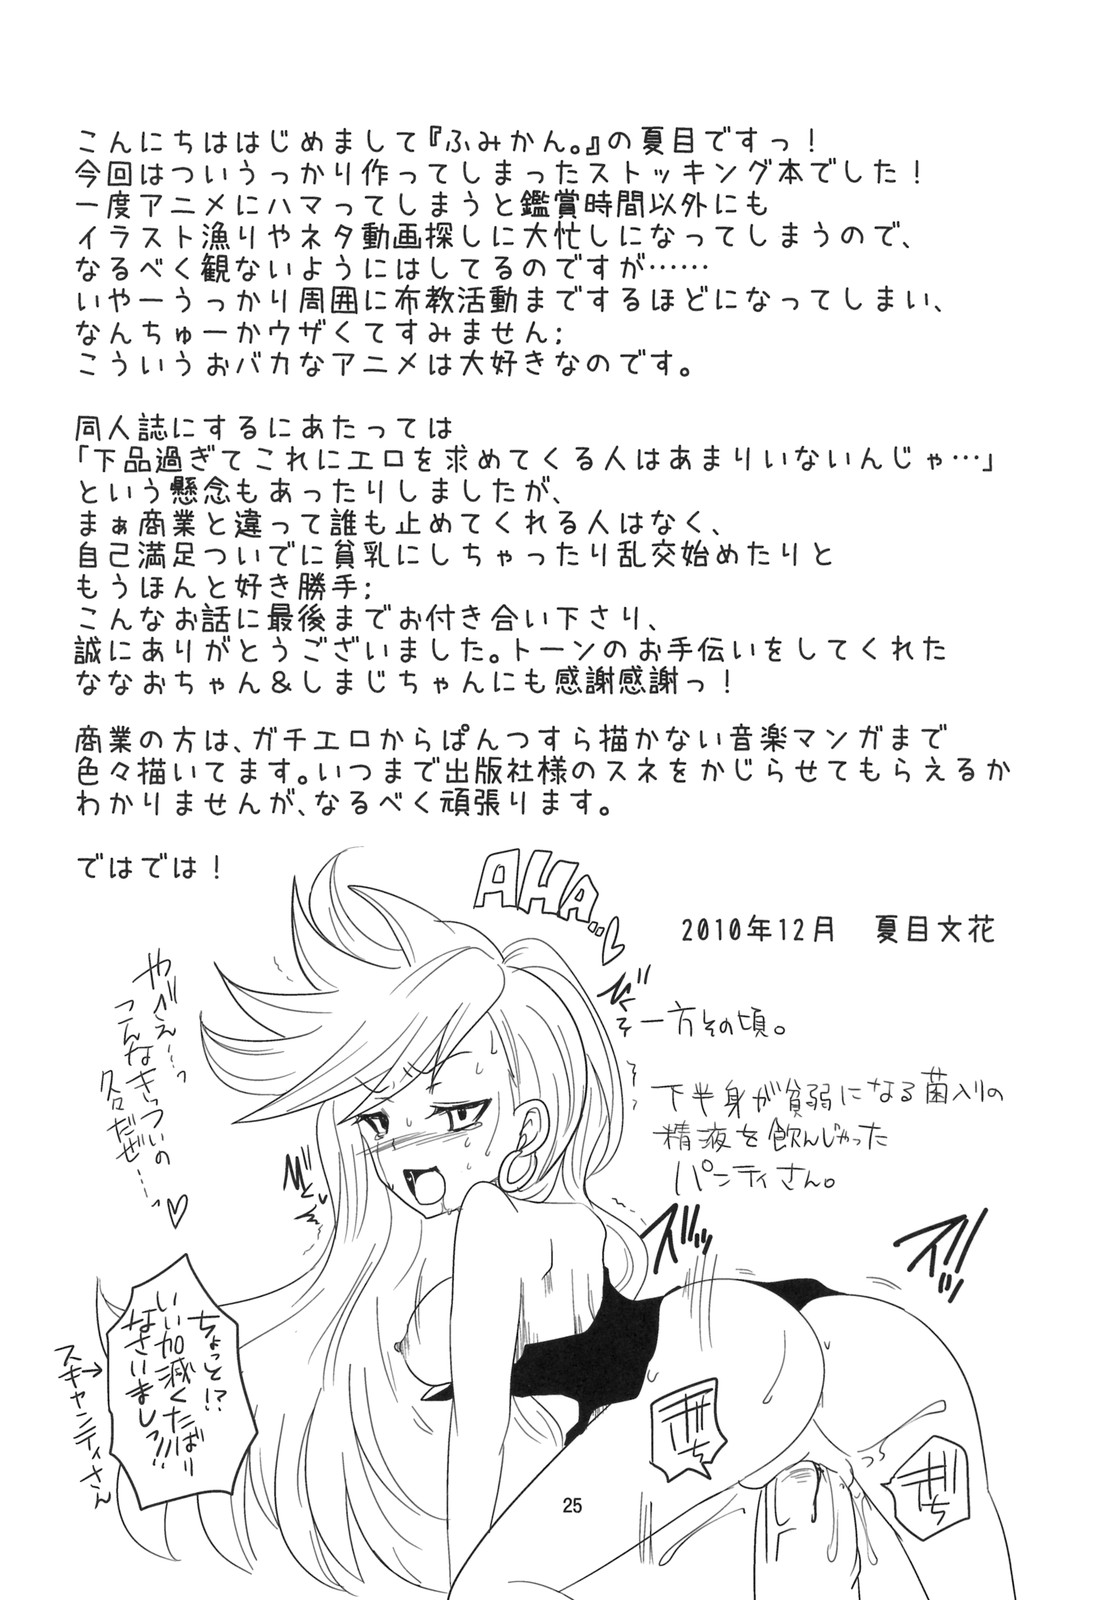 こんにちははじめまして『ふみかん。』の夏目ですっ！
今回はついうっかり作ってしまったストッキング本でした！
一度アニメにハマってしまうと鑑賞時間以外にも
イラスト漁りやネタ動画探しに大忙しになってしまうので、
なるべく観ないようにはしてるのですが……
いやーうっかり周囲に布教活動までするほどになってしまい、
なんちゅーかウザくてすみません;
こういうおバカなアニメは大好きなのです。
同人誌にするにあたっては
「下品過ぎてこれにエロを求めてくる人はあまりいないんじゃ…」
という懸念もあったりしましたが、
まぁ商業と違って誰も止めてくれる人はなく、
自己満足ついでに貧乳にしちゃったり乱交始めたりと
もうほんと好き勝手;
こんなお話に最後までお付き合い下さり、
誠にありがとうございました。トーンのお手伝いをしてくれた
ななおちゃん＆しまじちゃんにも感謝感謝っ！
商業の方は、ガチエロからぱんつすら描かない音楽マンガまで
色々描いてます。いつまで出版社様のスネをかじらせてもらえるか
わかりませんが、なるべく頑張ります。
ではでは！
2010年12月　夏目文花
AHA..
一方その頃。
下半身が貧弱になる菌入りの
精液を飲んじゃった
パンティさん。
やべぇ…っ
こんなきっついの
久々だぜ…っ
ちょっと!?
いい加減くたばり
なさいましっ!!
スキャンティさん
ズッ!!
25